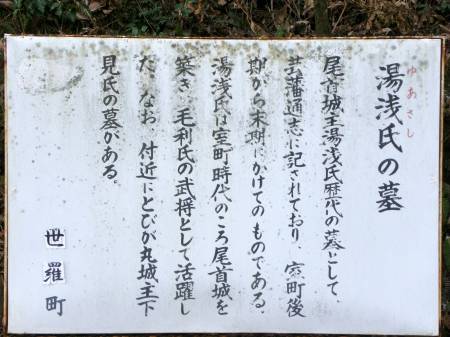 湯浅氏の墓
ゆあさし
尾首城主湯浅氏歴代の墓として、
芸藩通志に記されており、室町後
期から末期にかけてのものである。
湯浅氏は室町時代のころ尾首城を
築き、毛利氏の武将として活躍し
た。なお、付近にとびが丸城主下
見氏の墓がある。
世羅町